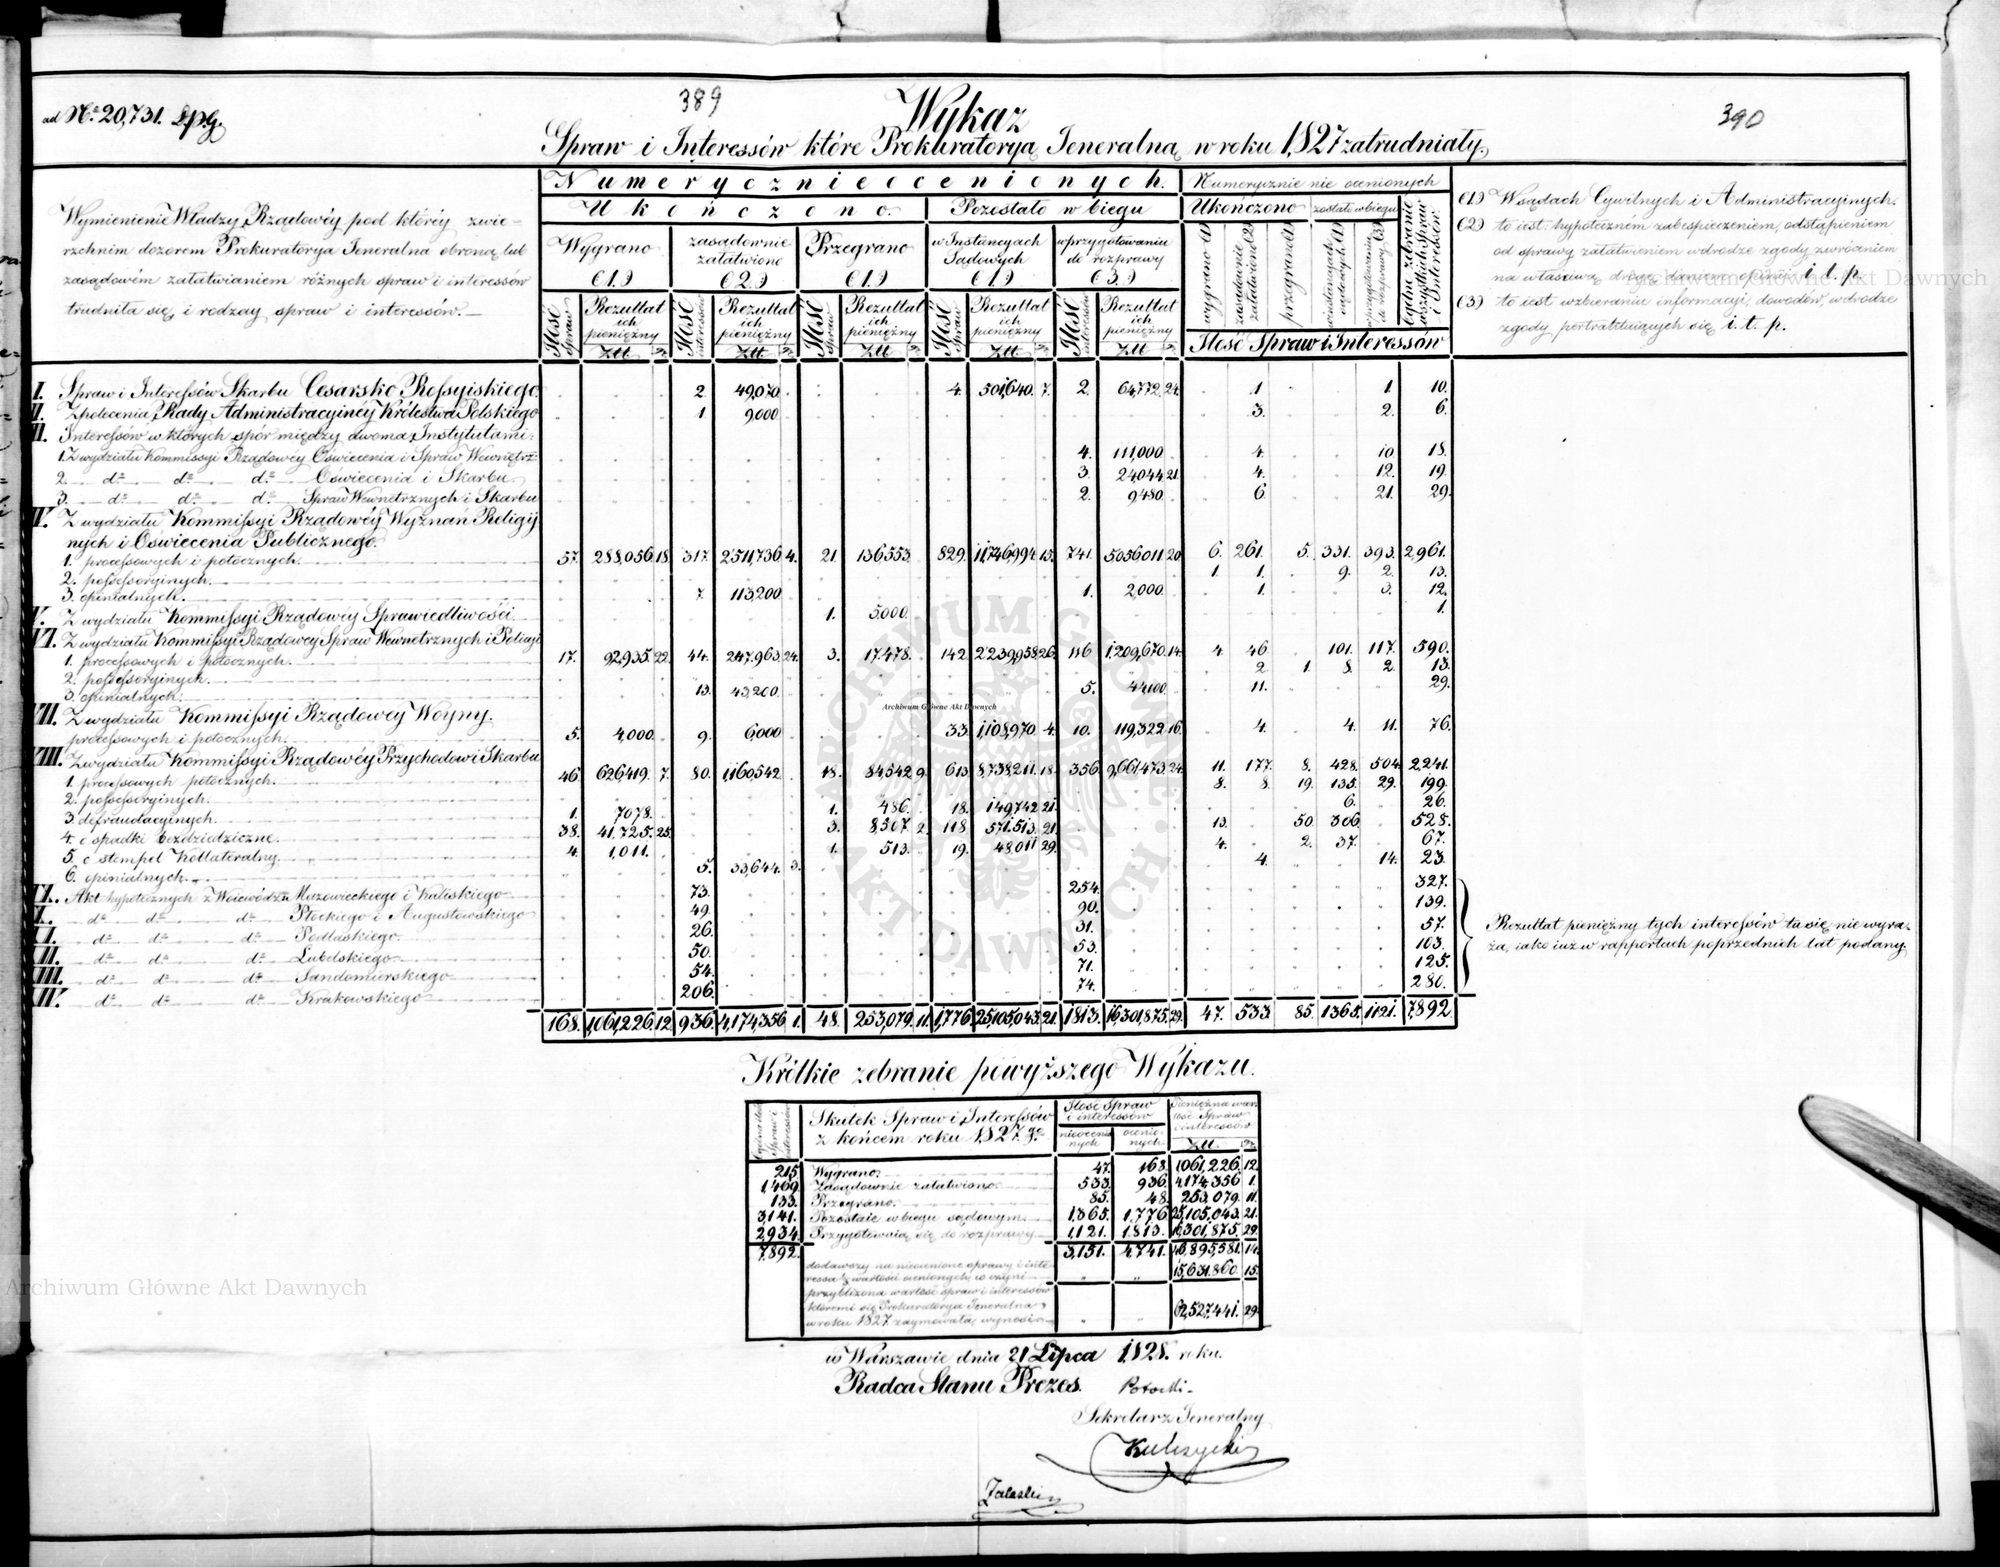 389
390
ad No. 20,731. L.p.g.
Wykaz
Spraw i Interessów które Prokuratoryą Jeneralną w roku 1,827 zatrudniały.
Wymienienie Władzy Rządowéy pod któréy zwie-
rzchnim dozorem Prokuratorya Jeneralna obroną lub
zasądowém załatwianiem różnych spraw i interessów
trudniła się, i rodzay spraw i interessów.
Numerycznie ocenionych.
Ukończono.
Pozostało w biegu
Wygrano (1.)
zasądownie załatwiono (2.)
Przegrano (1.)
w Instancyach Sądowych (1.)
w przygotowaniu do rozprawy (3.)
Ilość Spraw
Rezultat ich pieniężny
Złł gr
Ilość interessów
Rezultat ich pieniężny
Złł gr
Ilość Spraw
Rezultat ich pieniężny
Złł gr
Ilość Spraw
Rezultat ich pieniężny
Złł gr
Ilość interessów
Rezultat ich pieniężny
Złł gr
Numerycznie nie ocenionych
Ukończono
zostało w biegu
wygrano (1)
zasądownie załatwiono (2)
przegrano (1)
w instancyach sądowych (1)
w przygotowaniu do rozprawy (3)
Ogólne zebranie wszystkich Spraw i Interessów
Ilość Spraw i Interessów
(1) W sądach Cywilnych i Administracyinych.
(2) to iest: hypoteczném zabespieczeniem, odstąpieniem
od sprawy załatwieniem w drodze zgody zwróceniem
na właściwą drogę, daniem opinii i. t. p.
(3) to iest w zbieraniu informacyi, dowodów, w drodze
zgody pertraktuiących się i. t. p.
I. Spraw i Interessów Skarbu Cesarsko Rossyiskiego 2. 49,070. 4. 501,640. 7. 2. 64,772. 24. 1. 1. 10.
II. Z polecenia Rady Administracyinéy Królestwa Polskiego 1. 9,000 3. 2. 6.
III. Interessów w których spór między dwoma Instytutami:
1. Z wydziału Kommissyi Rządowéy Oświecenia i Spraw Wewnętrz: 4. 111,000 4. 10 18.
2. do. do. do. Oświecenia i Skarbu 3. 24044 21. 4. 12. 19
3. do. do. do. Spraw Wewnetrznych i Skarbu 2. 9,480. 6. 21. 29.
IV. Z wydziału Kommissyi Rządowéy Wyznań Religiy-
nych i Oświecenia Publicznego.
1. processowych i potocznych. 57. 288,056. 18. 317. 2,511,736. 4. 21. 136553. 829. 11,746,994. 15. 741. 5,056,011. 20 6. 261. 5. 331. 393. 2,961.
2. possessoryinych. 1. 1. 9. 2. 13.
3. opinialnych. 7. 113,200. 1. 2,000. 1. 3. 12.
V. Z wydziału Kommissyi Rządowéy Sprawiedliwości 1. 5000. 1.
VI. Z wydziału Kommissyi Rządowéy Spraw Wewnetrznych i Policyi
1. processowych i potocznych. 17. 92,935. 22. 44. 247,963. 24. 3. 17,478. 142. 2,239,958. 26. 116 1,209,670. 14. 4. 46. 101. 117. 590.
2. possessoryinych. 2. 1. 8. 2. 13.
3. opinialnych. 13. 43,200. 5. 44100. 11. 29.
VII. Z wydziału Kommissyi Rządowéy Woyny.
processowych i potocznych. 5. 4,000. 9. 6,000 33. 1,108,970. 4. 10. 119,322. 16. 4. 4. 11. 76.
VIII. Z wydziału Kommissyi Rządowéy Przychodów i Skarbu
1. processowych potocznych. 46. 626419. 7. 80. 1,160,542. 18. 84542. 9. 613. 8,738211. 18. 356. 9,661,473. 24. 11. 177. 8. 428. 504. 2,241.
2. possessoryinych. 8. 8. 19. 135. 29. 199.
3. defraudacyinych. 1. 7078. 1. 486. 18. 149,742 21. 6. 26.
4. o spadki bezdziedziczne. 38. 41,725. 25. 3. 8,507. 2. 118. 571,513. 21. 13. 50. 306. 528.
5. o stempel Kollateralny. 4. 1,011. 1. 513. 19. 48,011 29. 4. 2. 37. 67.
6. opinialnych. 5. 33,644. 3. 4. 14. 23.
IX. Akt hypotecznych z Woiewództw Mazowieckiego i Kaliskiego 73. 254. 327.
X. do. do. do. Płockiego i Augustowskiego 49. 90. 139.
XI. do. do. do. Podlaskiego 26. 31. 57.
XII. do. do. do. Lubelskiego 50. 53. 103.
XIII. do. do. do. Sandomierskiego 54. 71. 125.
XIV. do. do. do. Krakowskiego 206. 74. 280.
Rezultat pieniężny tych interessów tu się nie wyra-
ża, iako iuż w rapportach poprzednich lat podany.
168. 1,061,226. 12. 936. 4,174,356 1. 48. 253,079. 11. 1,776. 25,105,043. 21. 1813. 16,301,875. 29. 47. 533. 85. 1365. 1121. 7,892.
Krótkie zebranie powyższego Wykazu.
Ogólna ilość Spraw i interessów
Skutek Spraw i Interessów
z końcem roku 1827.go
Ilość Spraw i interessów
nieocenionych
ocenionych
Pieniężna wartość Spraw i interessów
Złł. gr
215 Wygrano. 47. 168. 1,061,226. 12.
1,469. Zasądownie załatwiono. 533. 936. 4,174,356 1.
133. Przegrano. 85. 48. 253,079. 11.
3,141. Pozostaie w biegu sądowym. 1,365. 1,776 25,105,043. 21.
2,934. Przygotowuią się do rozprawy 1,121. 1,813. 16,301,875. 29.
7,892. 3,151. 4,741. 46,895,581. 14.
dodawszy na nieocenione sprawy i inte-
ressa ⅓ wartości ocenionych, co czyni 15,631,860. 15.
przybliżona wartość spraw i interessów
któremi się Prokuratorya Jeneralna
w roku 1827 zaymowała, wynosi 62,527,441. 29.
w Warszawie dnia 21 Lipca 1,828. roku.
Radca Stanu Prezes. Potocki
Sekretarz Jeneralny
Kulczycki
Zaleski
Archiwum Główne Akt Dawnych
Archiwum Główne Akt Dawnych
Archiwum Główne Akt Dawnych
ARCHIWUM GŁÓWNE AKT DAWNYCH